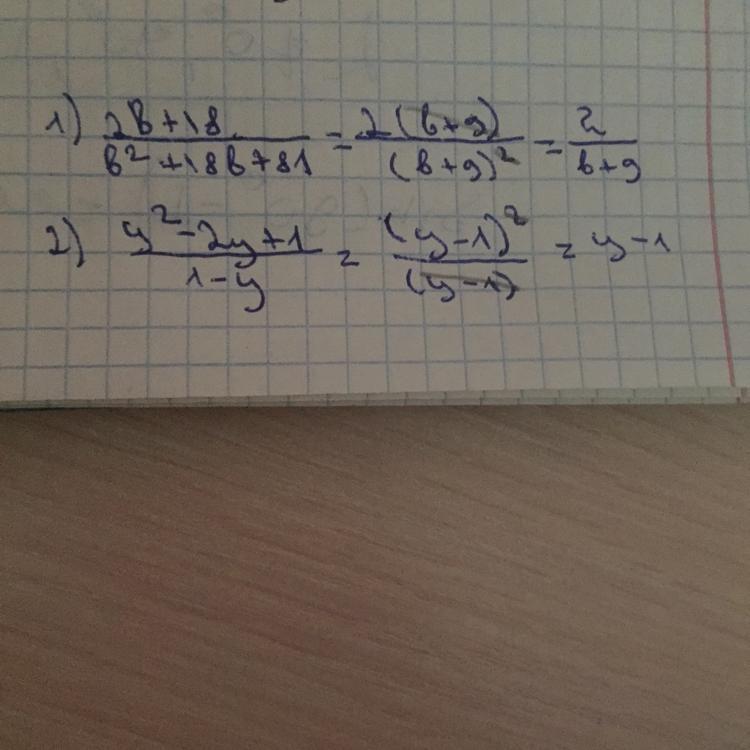 1) (2b+18)/(b²+18b+81) = 2(b+9)/(b+9)² = 2/(b+9)
2) (y²-2y+1)/(1-y) = (y-1)²/(y-1) = y-1